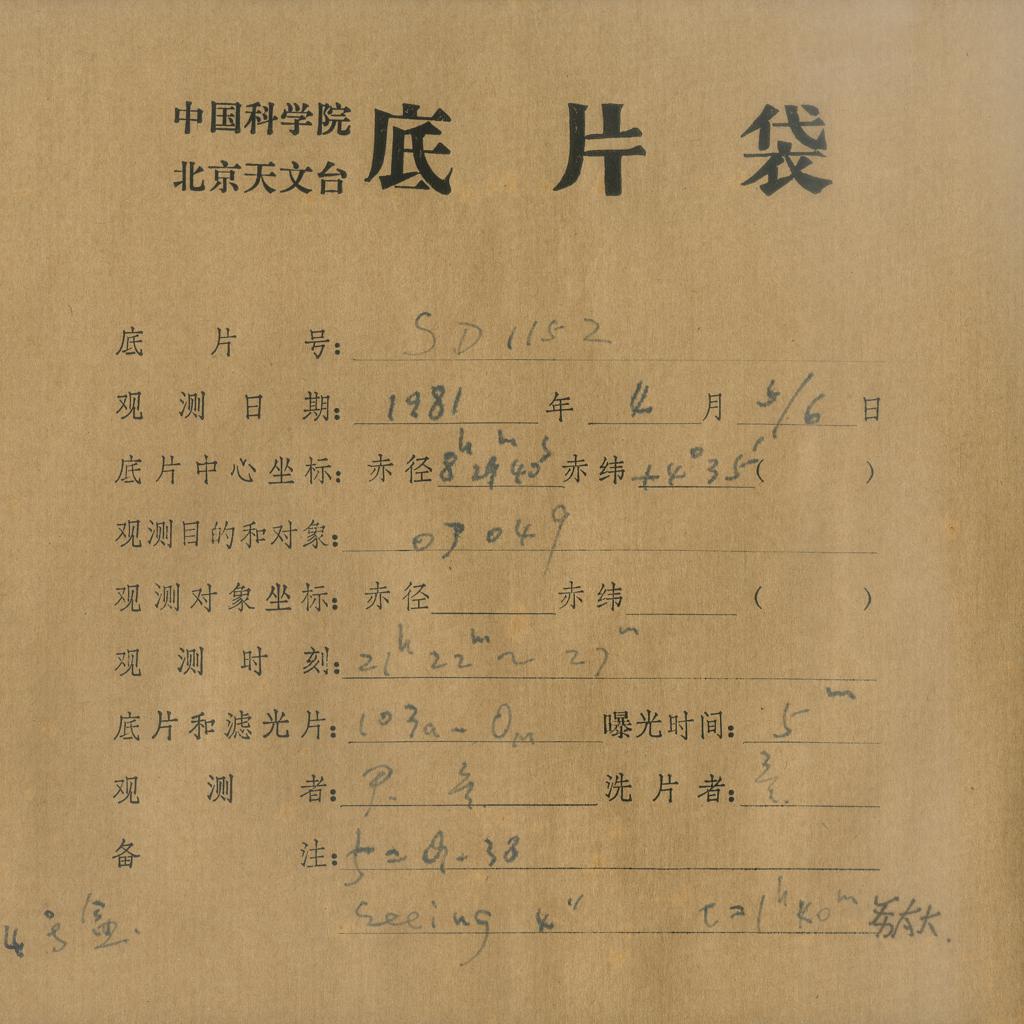 中国科学院
北京天文台
底片袋
底片号: SD 1152
观测日期: 1981 年 4 月 5/6 日
底片中心坐标: 赤径 8h 29m 40s 赤纬 +4°35′ ( )
观测目的和对象: 03049
观测对象坐标: 赤径 赤纬 ( )
观测时刻: 21h 22m ~ 27m
底片和滤光片: 103a-O 曝光时间: 5m
观测者: 洗片者:
备注: 38
seeing 4" t=1h 40m
4号盒.